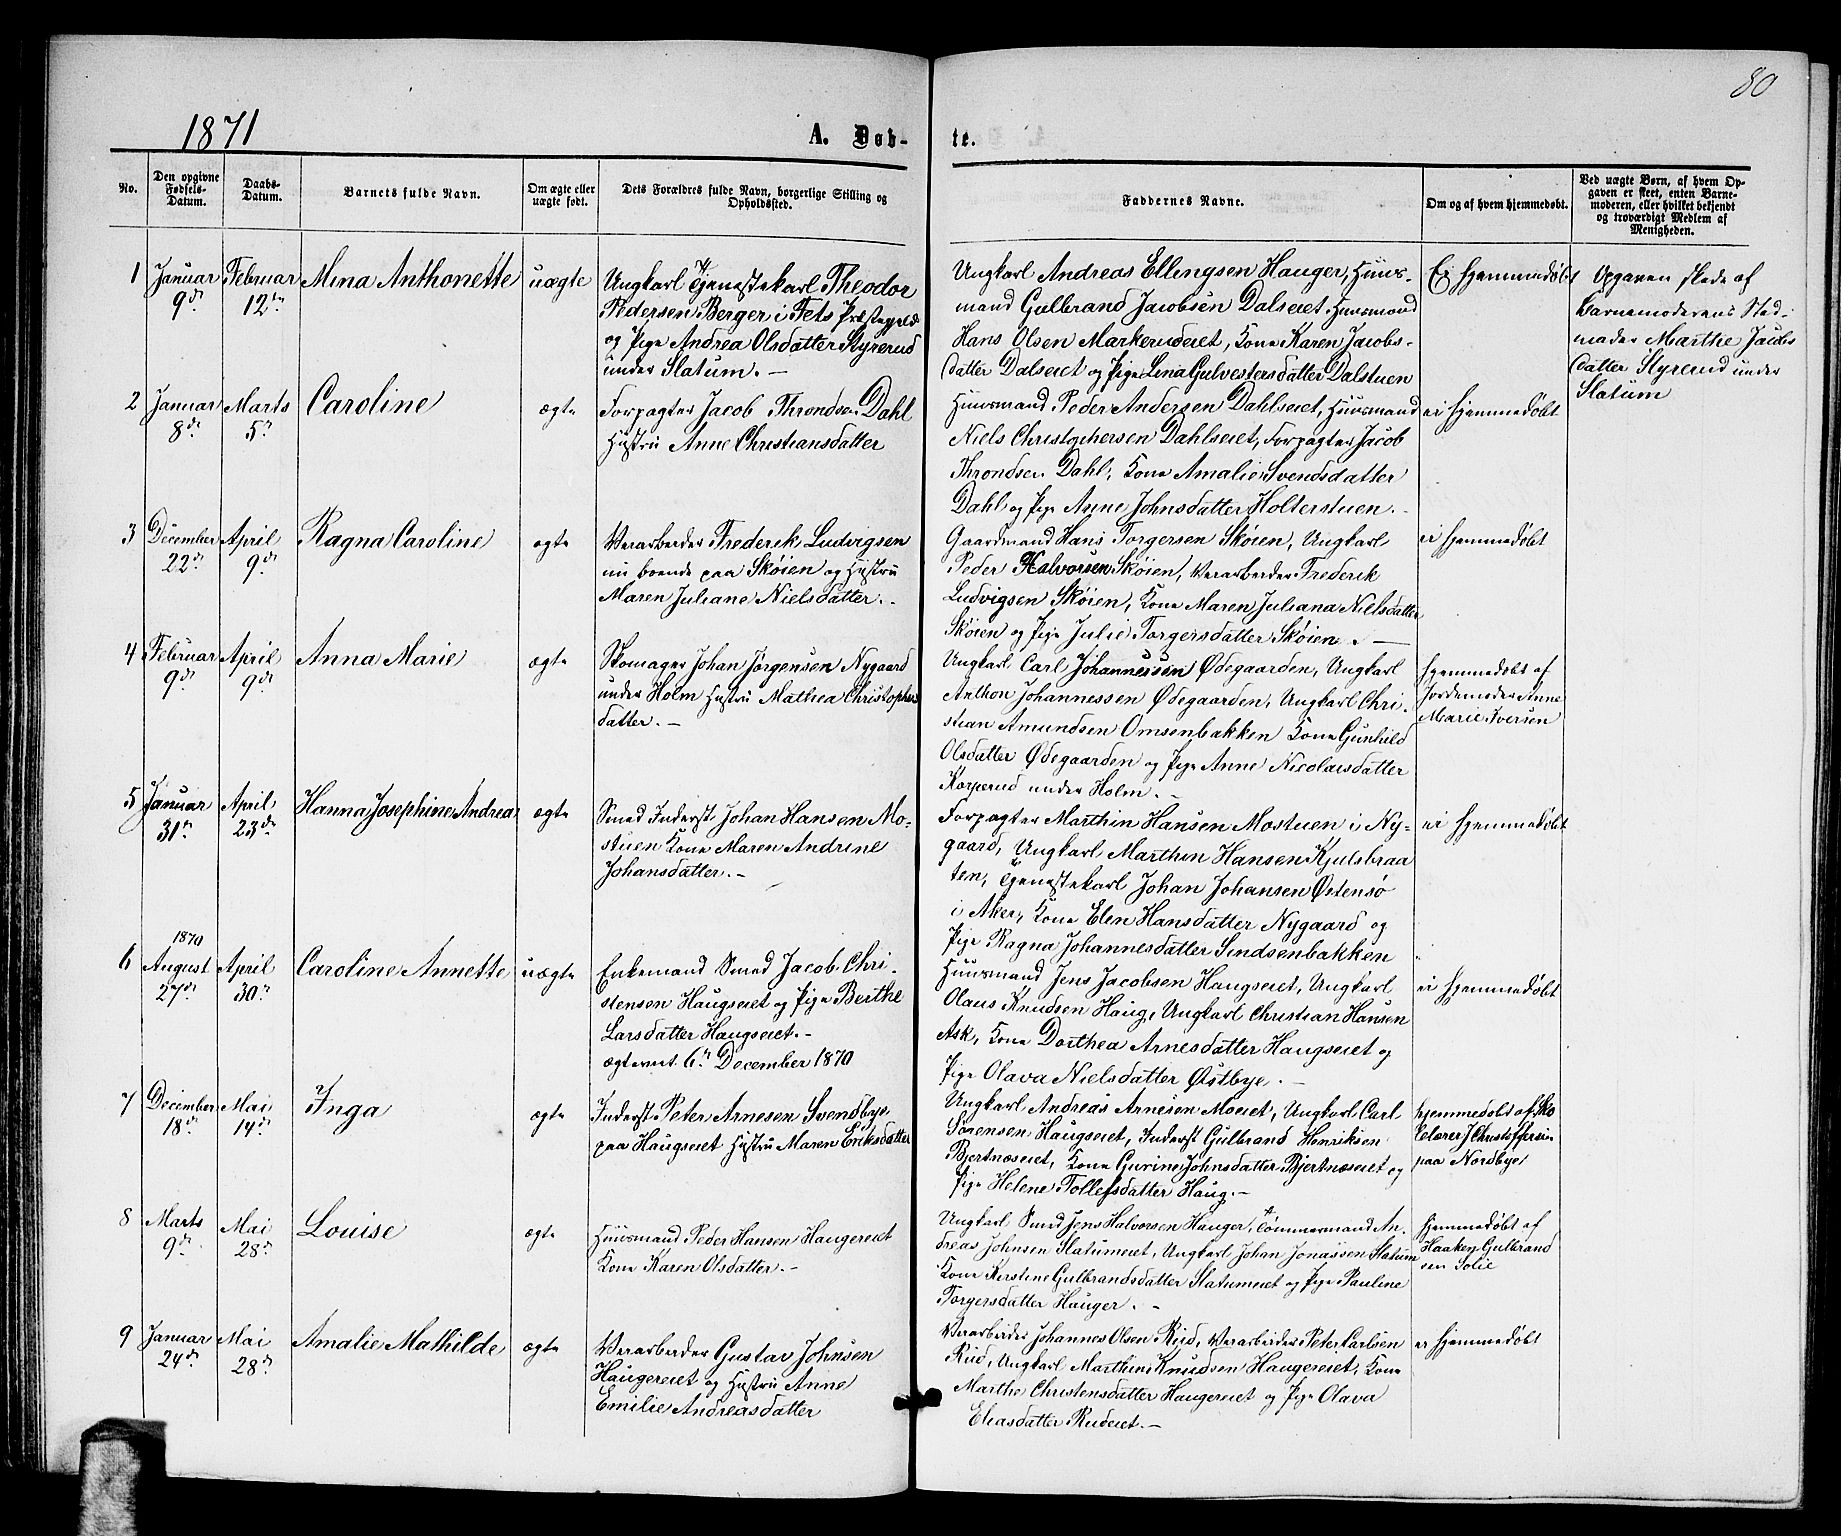 80
1871
A. Døb-
te.
No.
Den opgivne
Fødsels-
Datum.
Daabs-
Datum.
Barnets fulde Navn.
Om ægte eller
uægte født.
Dets Forældres fulde Navn, borgerlige Stilling og
Opholdssted.
Faddernes Navne.
Om og af hvem hjemmedøbt.
Ved uægte Børn, af hvem Op-
gaven er skeet, enten Barne-
moderen, eller hvilket bekjendt
og troværdigt Medlem af
Menigheden.
1
Januar
9de
Februar
12te
Mina Anthonette
uægte
Ungkarl Tjenestekarl Theodor
Pedersen Berger i Fets Præstegjeld
og Pige Andrea Olsdatter Styrerud
under Slatum. -
Ungkarl Andreas Ellingsen Hauger, Huus-
mand Gulbrand Jacobsen Dalseiet Huusmand
Hans Olsen Markerudeiet, Kone Karen Jacobs-
datter Dalseiet og Pige Lena Gulvestersdatter Dalstuen
Ei hjemmedøbt
Opgaven skede af
Barnemoderens Sted-
moder Marthe Jacobs
datter Styrerud under
Slatum
2
Januar
8de
Marts
5te
Caroline
ægte
Forpagter Jacob Throndsen Dahl
Hustru Anne Christiansdatter
Huusmand Peder Andersen Dahlseiet, Huusmand
Niels Christophersen Dahlseiet, Forpagter Jacob
Throndsen Dahl, Kone Amalie Svendsdatter
Dahl og Pige Anne Johnsdatter Holterstuen. -
ei hjemmedøbt
3
December
22de
April
9de
Ragna Caroline
ægte
Veiarbeider Frederik Ludvigsen
nu boende paa Skøien og Hustru
Maren Juliane Nielsdatter. -
Gaardmand Hans Torgersen Skøien, Ungkarl
Peder Halvorsen Skøien, Veiarbeider Frederik
Ludvigsen Skøien, Kone Maren Juliana Nielsdatter
Skøien og Pige Julie Torgersdatter Skøien. -
ei hjemmedøbt
4
Februar
9de
April
9de
Anna Marie
ægte
Skomager Johan Jørgensen Nygaard
under Holm Hustru Mathea Christophers
datter. -
Ungkarl Carl Johannessen Ødegaarden, Ungkarl
Anthon Johannessen Ødegaarden, Ungkarl Chri-
stian Amundsen Omsenbakken Kone Gunhild
Olsdatter Ødegaarden og Pige Anne Nicolaisdatter
Korperud under Holm. -
hjemmedøbt af
Jordemoder Anne
Marie Iversen
5
Januar
31te
April
23de
Hanna Josephine Andrea
ægte
Smed Inderst Johan Hansen Mo-
stuen Kone Maren Andrine
Johansdatter. -
Forpagter Marthin Hansen Mostuen i Ny-
gaard, Ungkarl Marthin Hansen Kjulsbraa
ten, Tjenestekarl Johan Johansen Østensø
i Aker, Kone Elen Hansdatter Nygaard og
Pige Ragna Johannesdatter Sindsenbakken
ei hjemmedøbt
6
1870
August
27de
April
30te
Caroline Annette
uægte
Enkemand Smed Jacob Chri-
stensen Haugseiet og Pige Berthe
Larsdatter Haugseiet. -
ægteviet 6te December 1870
Huusmand Jens Jacobsen Haugseiet, Ungkarl
Olaus Knudsen Haug, Ungkarl Christian Hansen
Ask, Kone Dorthea Arnesdatter Haugseiet og
Pige Olava Nielsdatter Østbye. -
ei hjemmedøbt
7
December
18de
Mai
14de
Inga
ægte
Inderst Peter Arnesen Svendbye
paa Haugseiet Hustru Maren Eriksdatter
Ungkarl Andreas Arnesen Moeiet, Ungkarl Carl
Sørensen Haugseiet, Inderst Gulbrand Henriksen
Bjertnæseiet, Kone Gurine Johnsdatter Bjertnæseiet og
Pige Helene Tollefsdatter Haug. -
hjemmedøbt af Sko
lelærer J Christoffersen
paa Nordbye
8
Marts
9de
Mai
28de
Louise
ægte
Huusmand Peder Hansen Haugereiet
Kone Karen Olsdatter. -
Ungkarl Smed Jens Halvorsen Hauger, Tømmermand An-
dreas Johnsen Slatumeiet, Ungkarl Johan Jonassen Slatum
Kone Kirstine Gulbrandsdatter Slatumeiet og Pige Pauline
Torgersdatter Hauger. -
hjemmedøbt af
Haaken Gulbrand
sen Solie
9
Januar
24de
Mai
28de
Amalie Mathilde
ægte
Veiarbeider Gustav Johnsen
Haugereiet og Hustru Anne
Emilie Andreasdatter
Veiarbeider Johannes Olsen Rud, Veiarbeider Peter Carlsen
Rud, Ungkarl Marthin Knudsen Haugereiet, Kone
Marthe Christensdatter Haugereiet og Pige Olava
Eliasdatter Rudeiet. -
ei hjemmedøbt